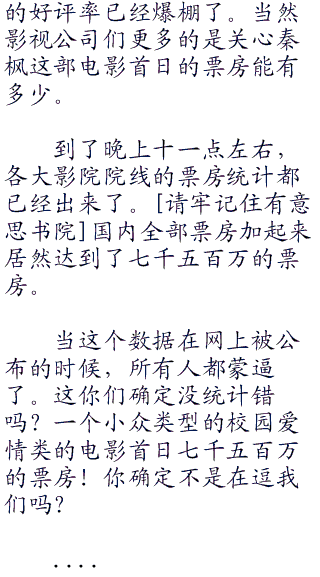 的好评率已经爆棚了。当然
影视公司们更多的是关心秦
枫这部电影首日的票房能有
多少。
到了晚上十一点左右，
各大影院院线的票房统计都
已经出来了。[请牢记住有意
思书院]国内全部票房加起来
居然达到了七千五百万的票
房。
当这个数据在网上被公
布的时候，所有人都蒙逼
了。这你们确定没统计错
吗？一个小众类型的校园爱
情类的电影首日七千五百万
的票房！你确定不是在逗我
们吗？
....